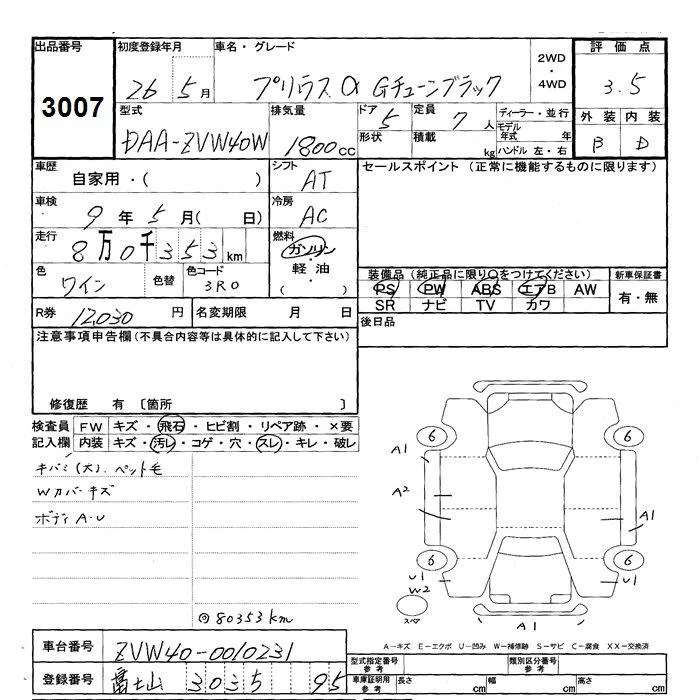 出品番号 初度登録年月 車名・グレード 2WD・4WD 評価点
3007 26 5月 プリウスα Gチューンブラック 3.5
型式 排気量 ドア 5 定員 7人 ディーラー・並行 外装 内装
DAA-ZVW40W 1800cc 形状 積載 kg モデル年式 年 ハンドル 左・右 B D
車歴 自家用・( ) シフト AT セールスポイント (正常に機能するものに限ります)
車検 9年 5月( 日) 冷房 AC
走行 8万0千353km 燃料 ガソリン・軽油・( )
色 ワイン 色替 色コード 3R0
装備品 (純正品に限り○をつけてください) 新車保証書
PS PW ABS エアB AW 有・無
SR ナビ TV カワ
R券 12,030円 名変期限 月 日 後日品
注意事項申告欄(不具合内容等は具体的に記入して下さい)
修復歴 有 〔箇所 〕
検査員 FW キズ・飛石・ヒビ割・リペア跡・×要
記入欄 内装 キズ・汚レ・コゲ・穴・スレ・キレ・破レ
キバミ(大)、ペット毛
Wカバーキズ
ボディA・U
◎80353km
6 6
A1
A2 A1
6 6
U1 U1
W2
スペア A1
A-キズ E-エクボ U-凹み W-補修跡 S-サビ C-腐食 XX-交換済
車台番号 ZVW40-0010231 型式指定番号 参考 類別区分番号 参考
登録番号 富士山 303 5 95 車庫証明用 参考 長さ cm 幅 cm 高さ cm